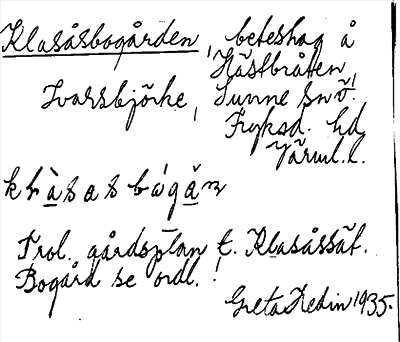 Klasåsbogården, beteshag å
Hästbråten,
Ivarsbjörke, Sunne sn
Fryksd. hd
Värml. l.
Trol. gårdsplan t. Klasåssät.
Bogård se ordl. !
Greta Hedin 1935.